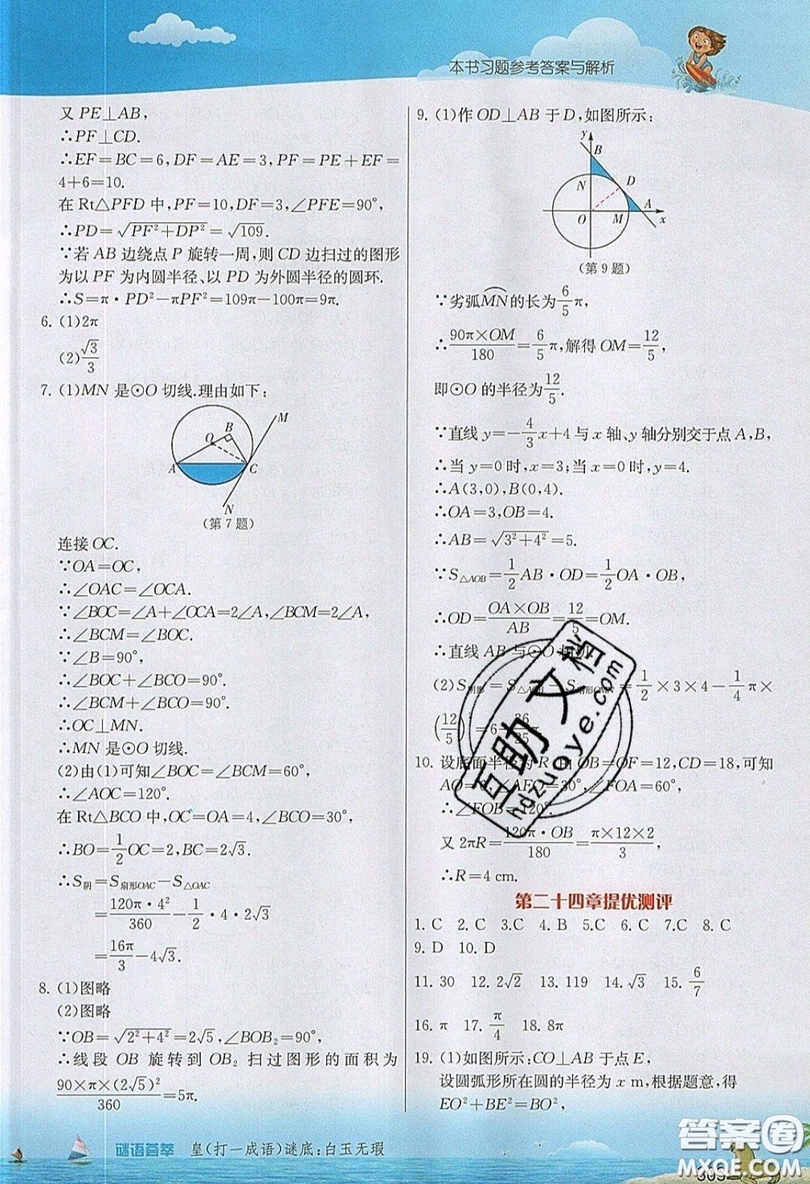 本书习题参考答案与解析
又 PE⊥AB,
∴PF⊥CD.
∴EF=BC=6,DF=AE=3,PF=PE+EF=
4+6=10.
在 Rt△PFD 中,PF=10,DF=3,∠PFE=90°,
∴PD=√(PF²+DP²)=√109.
∵若 AB 边绕点 P 旋转一周,则 CD 边扫过的图形
为以 PF 为内圆半径、以 PD 为外圆半径的圆环.
∴S=π·PD²-πPF²=109π-100π=9π.
6. (1)2π
(2)√3/3
7. (1)MN 是⊙O 切线.理由如下:
M
B
O
A
C
N
(第 7 题)
连接 OC.
∵OA=OC,
∴∠OAC=∠OCA.
∵∠BOC=∠A+∠OCA=2∠A,∠BCM=2∠A,
∴∠BCM=∠BOC.
∵∠B=90°,
∴∠BOC+∠BCO=90°.
∴∠BCM+∠BCO=90°.
∴OC⊥MN.
∴MN 是⊙O 切线.
(2)由(1)可知∠BOC=∠BCM=60°,
∴∠AOC=120°.
在 Rt△BCO 中,OC=OA=4,∠BCO=30°,
∴BO=1/2 OC=2,BC=2√3.
∴S阴=S扇形OAC-S△OAC
=120π·4²/360-1/2·4·2√3
=16π/3-4√3.
8. (1)图略
(2)图略
∵OB=√(2²+4²)=2√5,∠BOB₂=90°,
∴线段 OB 旋转到 OB₂ 扫过图形的面积为
90×π×(2√5)²/360=5π.
9. (1)作 OD⊥AB 于 D,如图所示:
y
B
N
D
O
M
A
x
(第 9 题)
∵劣弧MN的长为6/5π,
∴90π×OM/180=6/5π,解得 OM=12/5,
即⊙O 的半径为12/5.
∵直线 y=-4/3x+4 与 x 轴、y 轴分别交于点 A,B,
∴当 y=0 时,x=3;当 x=0 时,y=4.
∴A(3,0),B(0,4).
∴OA=3,OB=4.
∴AB=√(3²+4²)=5.
∵S△AOB=1/2AB·OD=1/2OA·OB,
∴OD=OA×OB/AB=12/5=OM.
∴直线 AB 与⊙O
(2)S阴影=S△AOB-S扇形OMN=1/2×3×4-1/4π×
(12/5)²=6-36/25
10. 设底面半径为 R OB=OF=12,CD=18,可知
30°,∠FOA=60°,
∴∠FOB=120°
又 2πR=120π·OB/180=π×12×2/3,
∴R=4 cm.
第二十四章提优测评
1. C 2. C 3. C 4. B 5. C 6. C 7. C 8. C
9. D 10. D
11. 30 12. 2√2 13. 119 14. √3 15. 6/7
16. π 17. π/4 18. 8π
19. (1)如图所示:CO⊥AB 于点 E,
设圆弧形所在圆的半径为 x m,根据题意,得
EO²+BE²=BO²,
互助文档
hdzuoye.com
谜语荟萃 皇(打一成语)谜底:白玉无瑕
答案圈
MXQE.COM